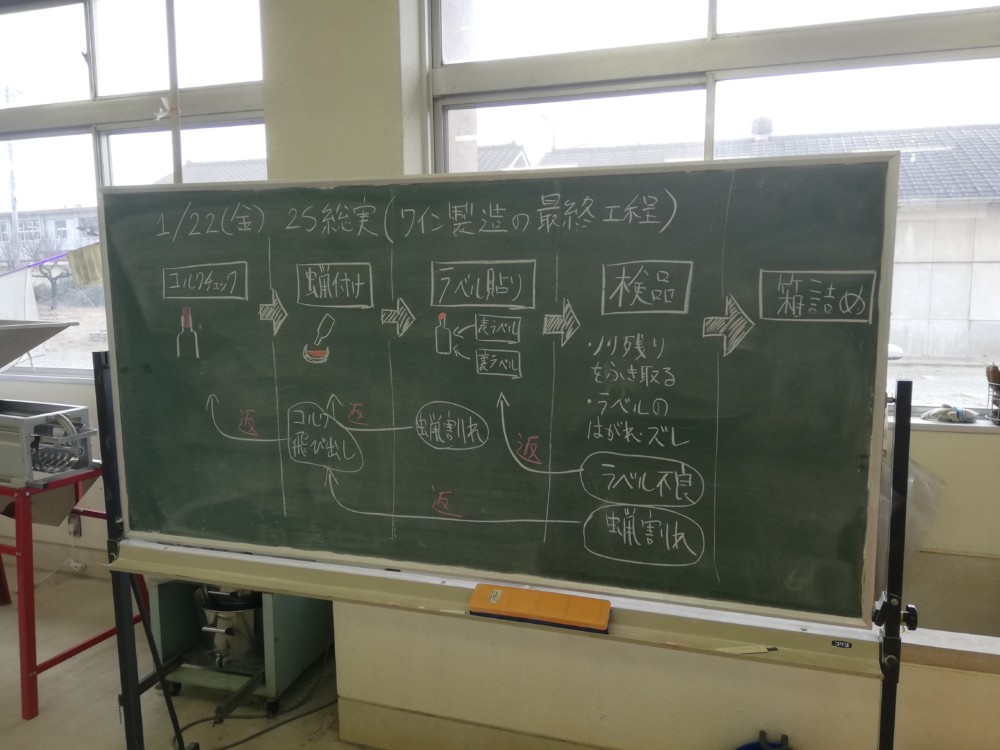 1/22(金) 2S総実(ワイン製造の最終工程)
コルクチェック
蝋付け
ラベル貼り
検品
箱詰め
表ラベル
裏ラベル
・ノリ残り
をふき取る
・ラベルの
はがれ・ズレ
返
コルク
飛び出し
返
蝋割れ
返
ラベル不良
返
蝋割れ